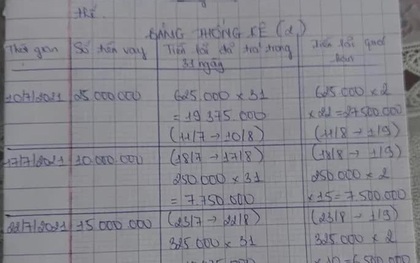 thế.
BẢNG THỐNG KÊ (1)
Thời gian Số tiền vay Tiền lãi đã trả trong Tiền lãi quá
31 ngày hạn
10/7/2021 25.000.000 625.000 x 31 625.000 x 2
= 19.375.000 x 22 = 27.500.000
(11/7 → 10/8) (11/8 → 1/9)
17/7/2021 10.000.000 (18/7 → 17/8) (18/8 → 1/9)
250.000 x 31 250.000 x 2
= 7.750.000 x 15 = 7.500.000
22/7/2021 15.000.000 (23/7 → 22/8) (23/8 → 1/9)
325.000 x 31 325.000 x 2